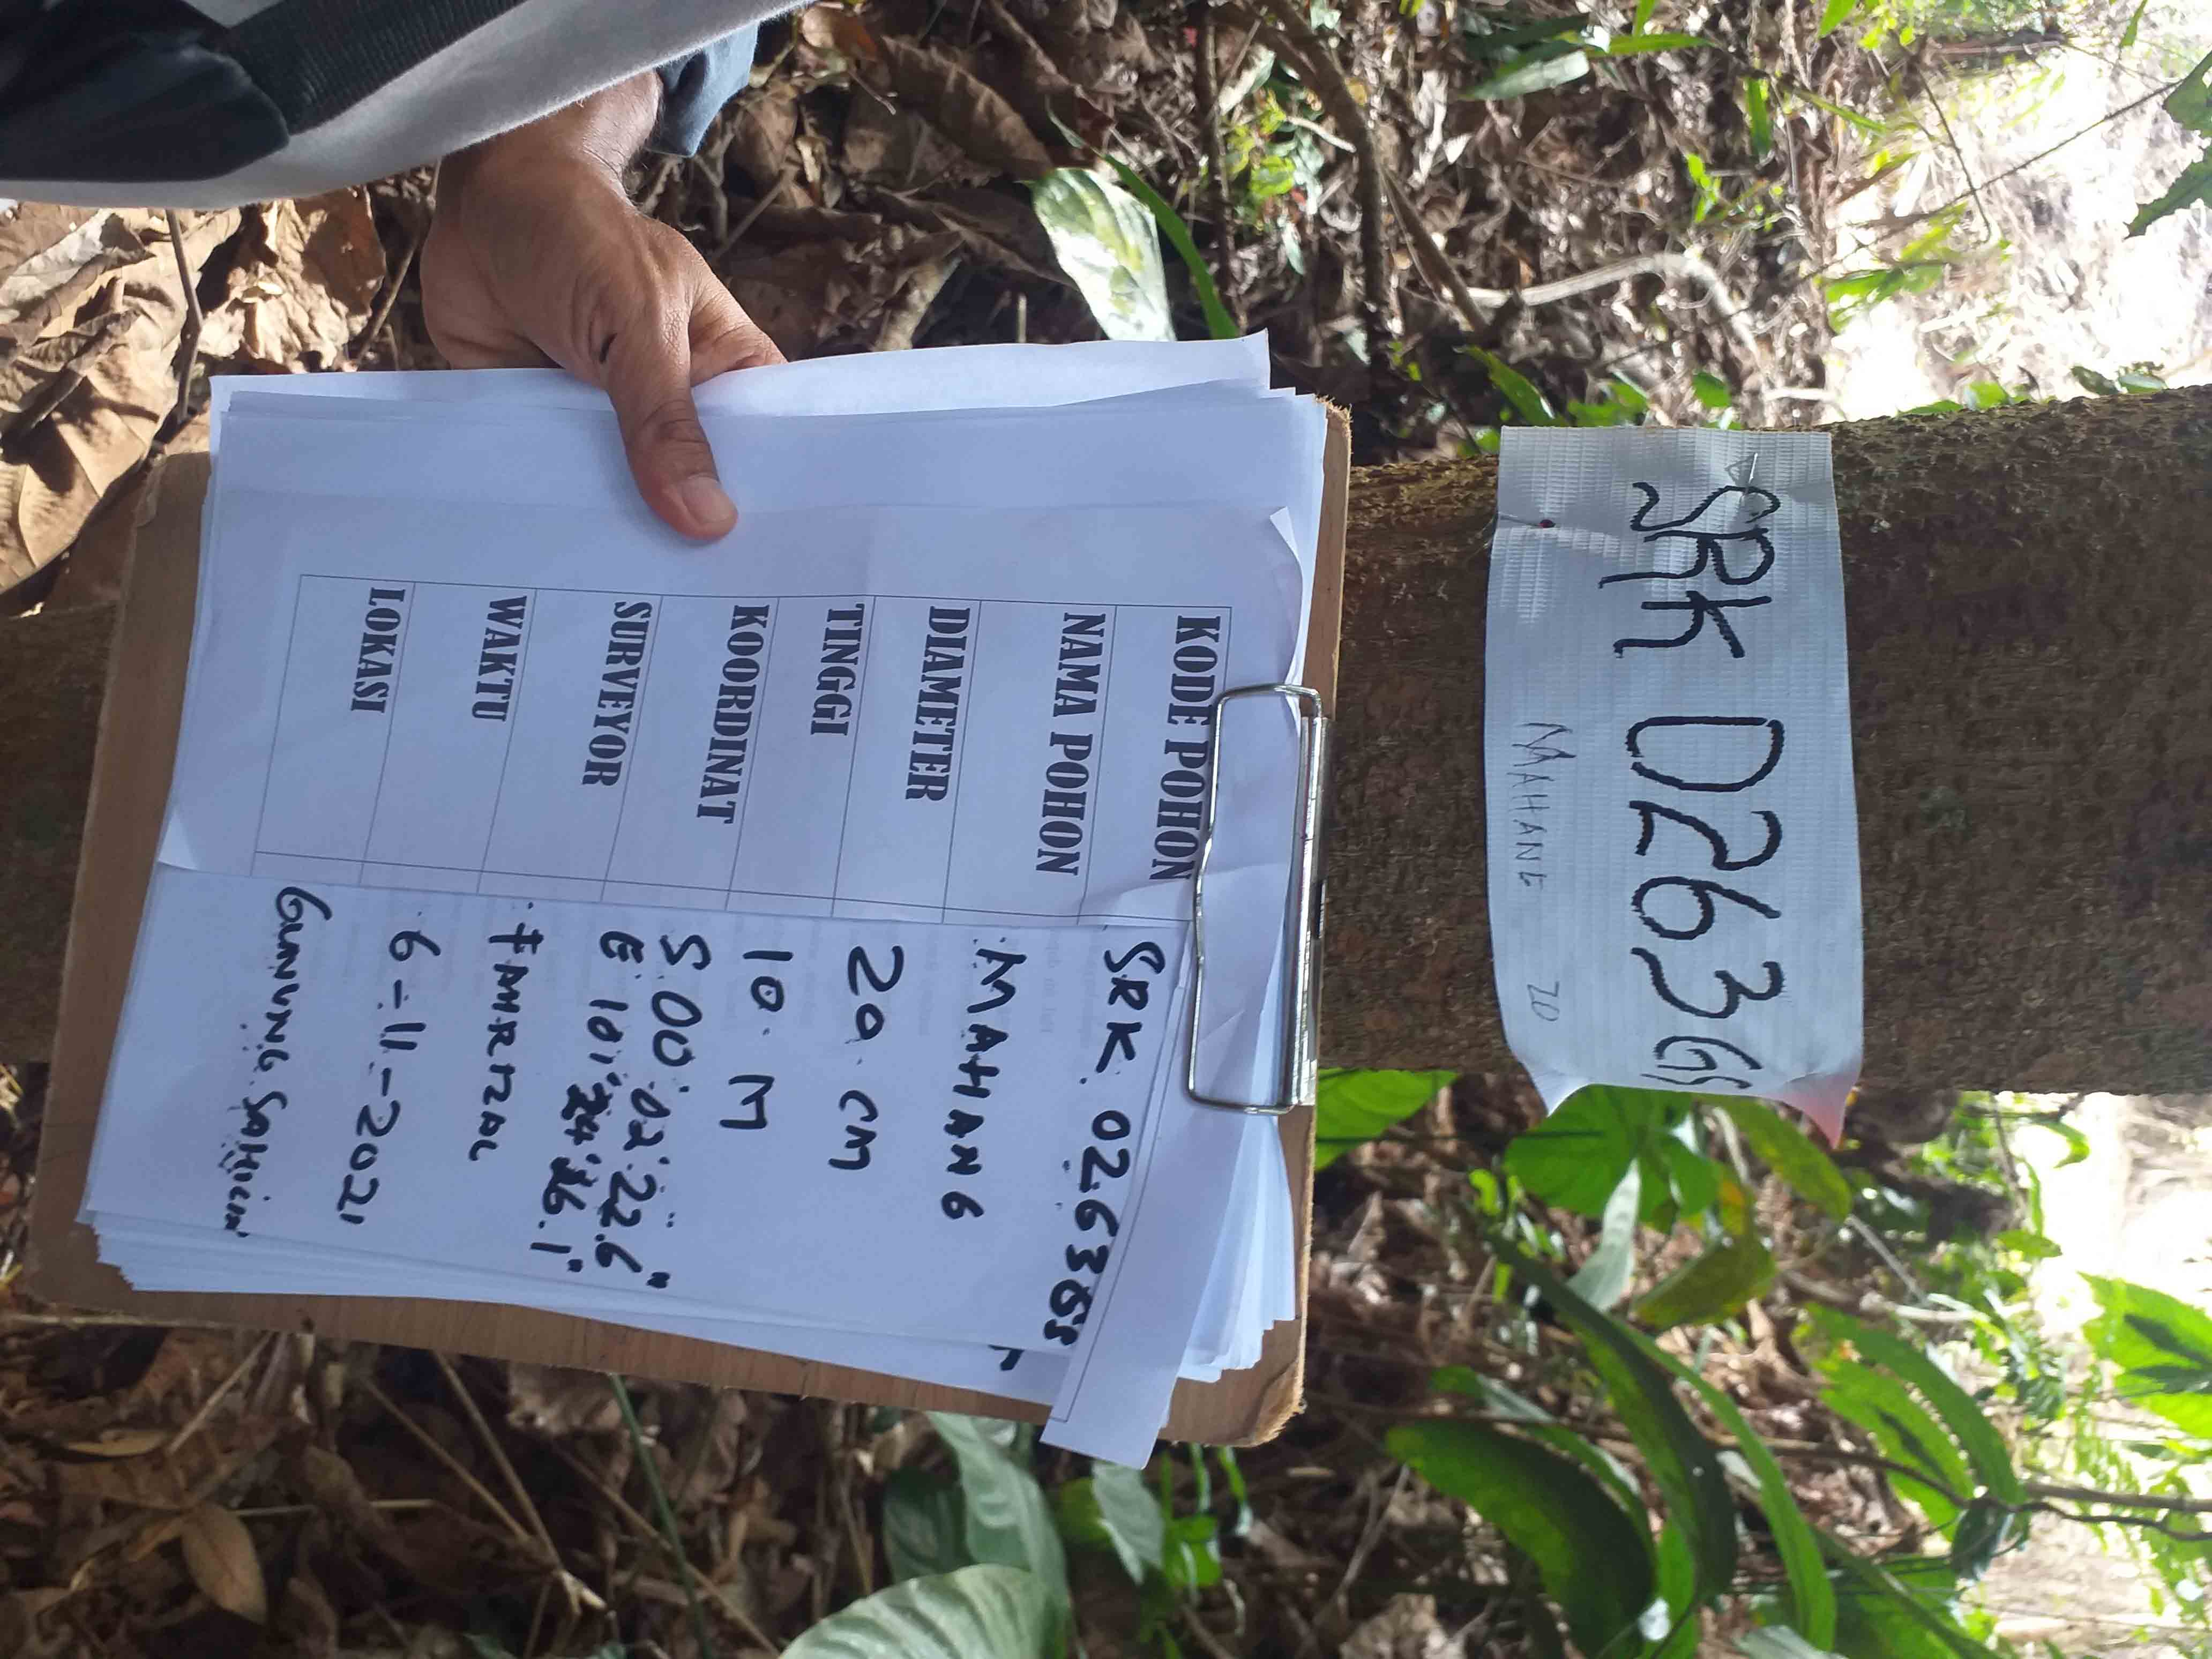 SRK 0263GS
MAHANG 20
KODE POHON SRK. 0263GS
NAMA POHON MAHANG
DIAMETER 20 CM
TINGGI 10 M
KOORDINAT S 00° 02' 22.6"
E 101° 24' 36.1"
SURVEYOR : AMRIZAL
WAKTU 6-11-2021
LOKASI GUNUNG SAHILAN